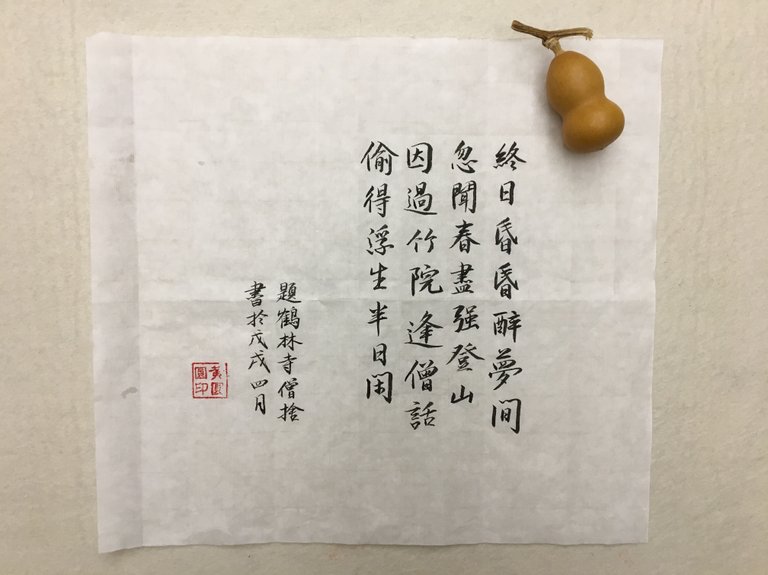 終日昏昏醉夢間
忽聞春盡强登山
因過竹院逢僧話
偷得浮生半日閑
題鶴林寺僧捨
書於戊戌四月
圓印